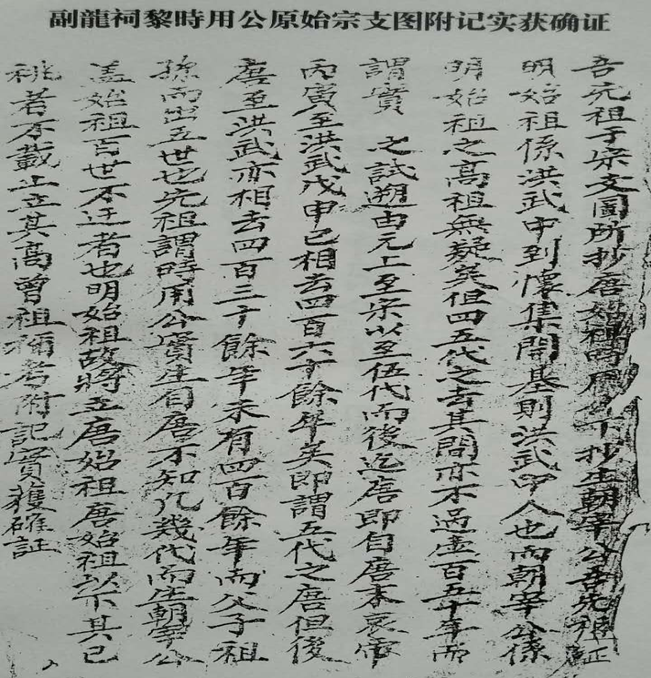 副龍祠黎時用公原始宗支图附记实获确证
吾元祖于宗支圖所抄唐始祖時用公下抄生朝宰公吾先祖証
明始祖係洪武中到懷集開基則洪武甲人也而朝宰公係
明始祖之高祖無疑矣但四五代之古其間亦不過虛百五十年而
謂實 之試朔由元上至宋以至伍代而後迄唐即自唐末哀帝
丙寅至洪武戊申已相去四百六十餘年矣即謂五代之唐但後
唐至洪武亦相去四百三十餘年未有四百餘年而父子祖
孫而出五世也先祖謂時用公實生自唐不知凡幾代而生朝宰公
盖始祖百世不迁者也明始祖故將立唐始祖唐始祖以下其已
祧者不載止立其高曾祖祢考附記實獲確証